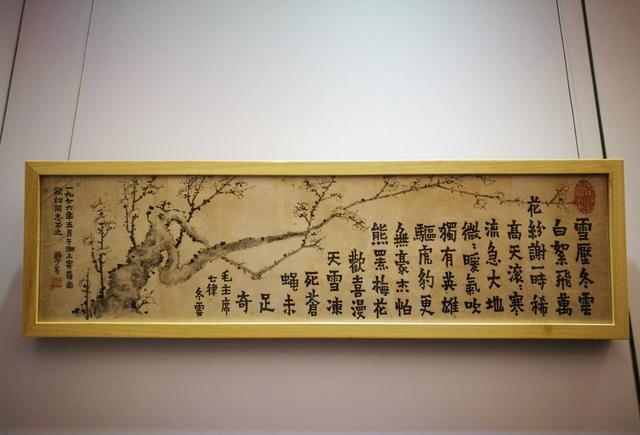 雪壓冬雲
白絮飛萬
花紛謝一時稀
高天滚〻寒
流急大地
微〻暖氣吹
獨有英雄
驅虎豹更
無豪杰怕
熊羆梅花
歡喜漫
天雪凍
死蒼
蠅未
足
奇
毛主席
七律
冬雲
一九七六年五月于湖上客寓
初同志正之